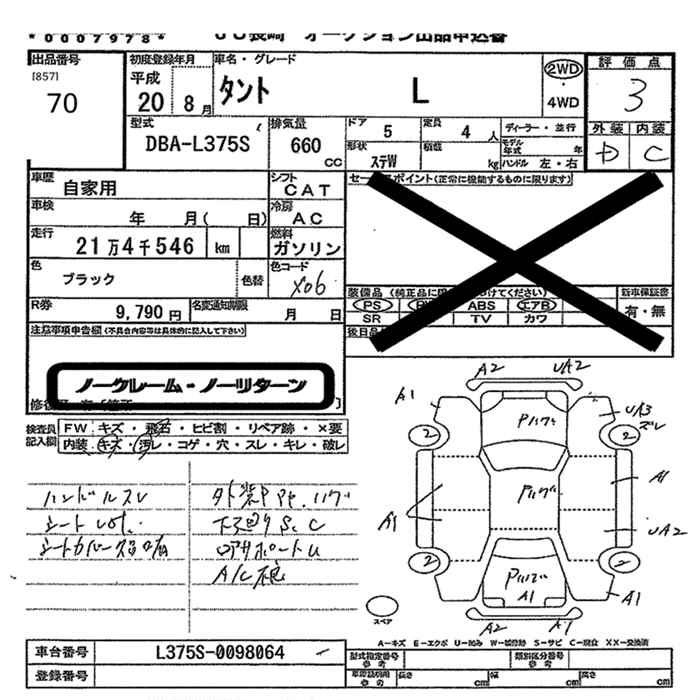 *0007978*
JU長崎 オークション出品申込書
出品番号 初度登録年月 車名・グレード 評価点
[857] 平成 2WD
70 20年 8月 タント L ・ 3
4WD
型式 排気量 ドア 5 定員 4人 ディーラー・並行 外装 内装
DBA-L375S 660 CC 形状 ステW 積載 kg モデル年式 年 D C
ハンドル 左・右
車歴 自家用 シフト CAT セールスポイント(正常に機能するものに限ります)
車検 年 月( 日) 冷房 AC
走行 21万4千546 km 燃料 ガソリン
色 ブラック 色替 色コード X06
装備品(純正品に限り をつけてください) 新車保証書
PS ABS エアB 有・無
SR TV カワ
R券 9,790円 名変通知期限 月 日
後日品
注意事項申告欄(不具合内容等は具体的に記入して下さい)
ノークレーム・ノーリターン
検査員 FW キズ・飛石・ヒビ割・リペア跡・×要
記入欄 内装 キズ・汚レ・コゲ・穴・スレ・キレ・破レ
A2 UA2
A1 Pハゲ UA3
ズレ
2 2
A1 Pハゲ A1
UA2
2 2
Pハゲ
A1 A1
A2 A1
スペア
ハンドルスレ 外装PP.ハゲ
下廻りS.C
シートカバー
A/C
A-キズ E-エクボ U-凹み W-補修跡 S-サビ C-腐食 XX-交換済
車台番号 L375S-0098064
登録番号
型式指定番号 参考 類別区分番号 参考
車庫証明用 参考 長さ cm 幅 cm 高さ cm